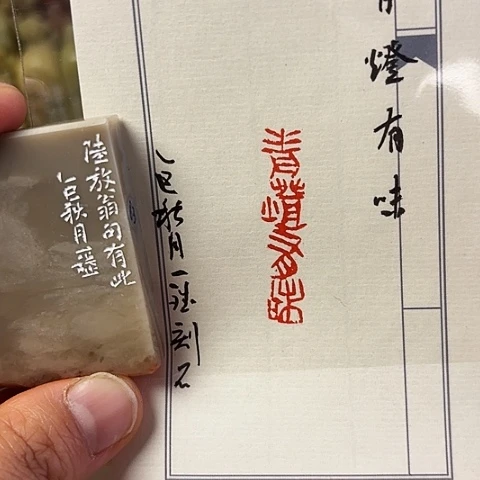 燈有味
青燈有味
乙巳秋月一刻石
陸放翁句有此
乙巳秋月一